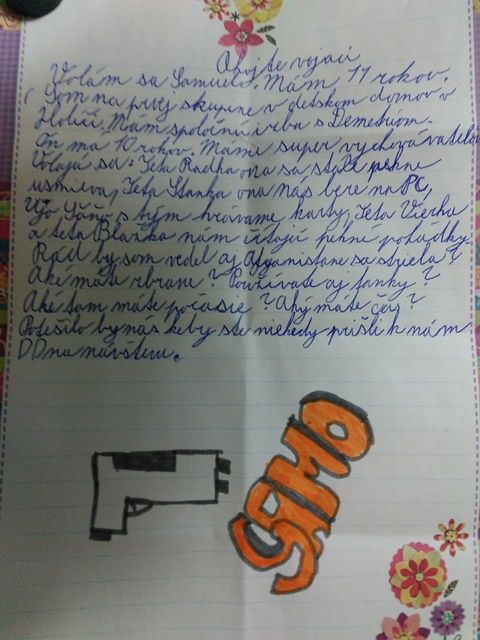 Ahojte vojaci
Volám sa Samuel. Mám 11 rokov.
Som na prvej skupine v detskom domove v
Holíči. Mám spoločnú izbu s Demeterom.
On ma 10 rokov. Máme super vychovávatelov
Volajú sa: Teta Radka ona sa stále pekne
usmieva, Teta Stanka ona nás bere na PC,
Ujo Jáňo s ným hrávame karty, Teta Vierka
a teta Blažka nám čítajú pekné pohádky.
Rád by som vedel aj Afganistane sa striela?
Aké máte zbrane? Používate aj tanky?
Aké tam máte počasie? Aký máte čas?
Potešilo by nás keby ste niekedy prišli k nám
DD na návštevu.
SAMO